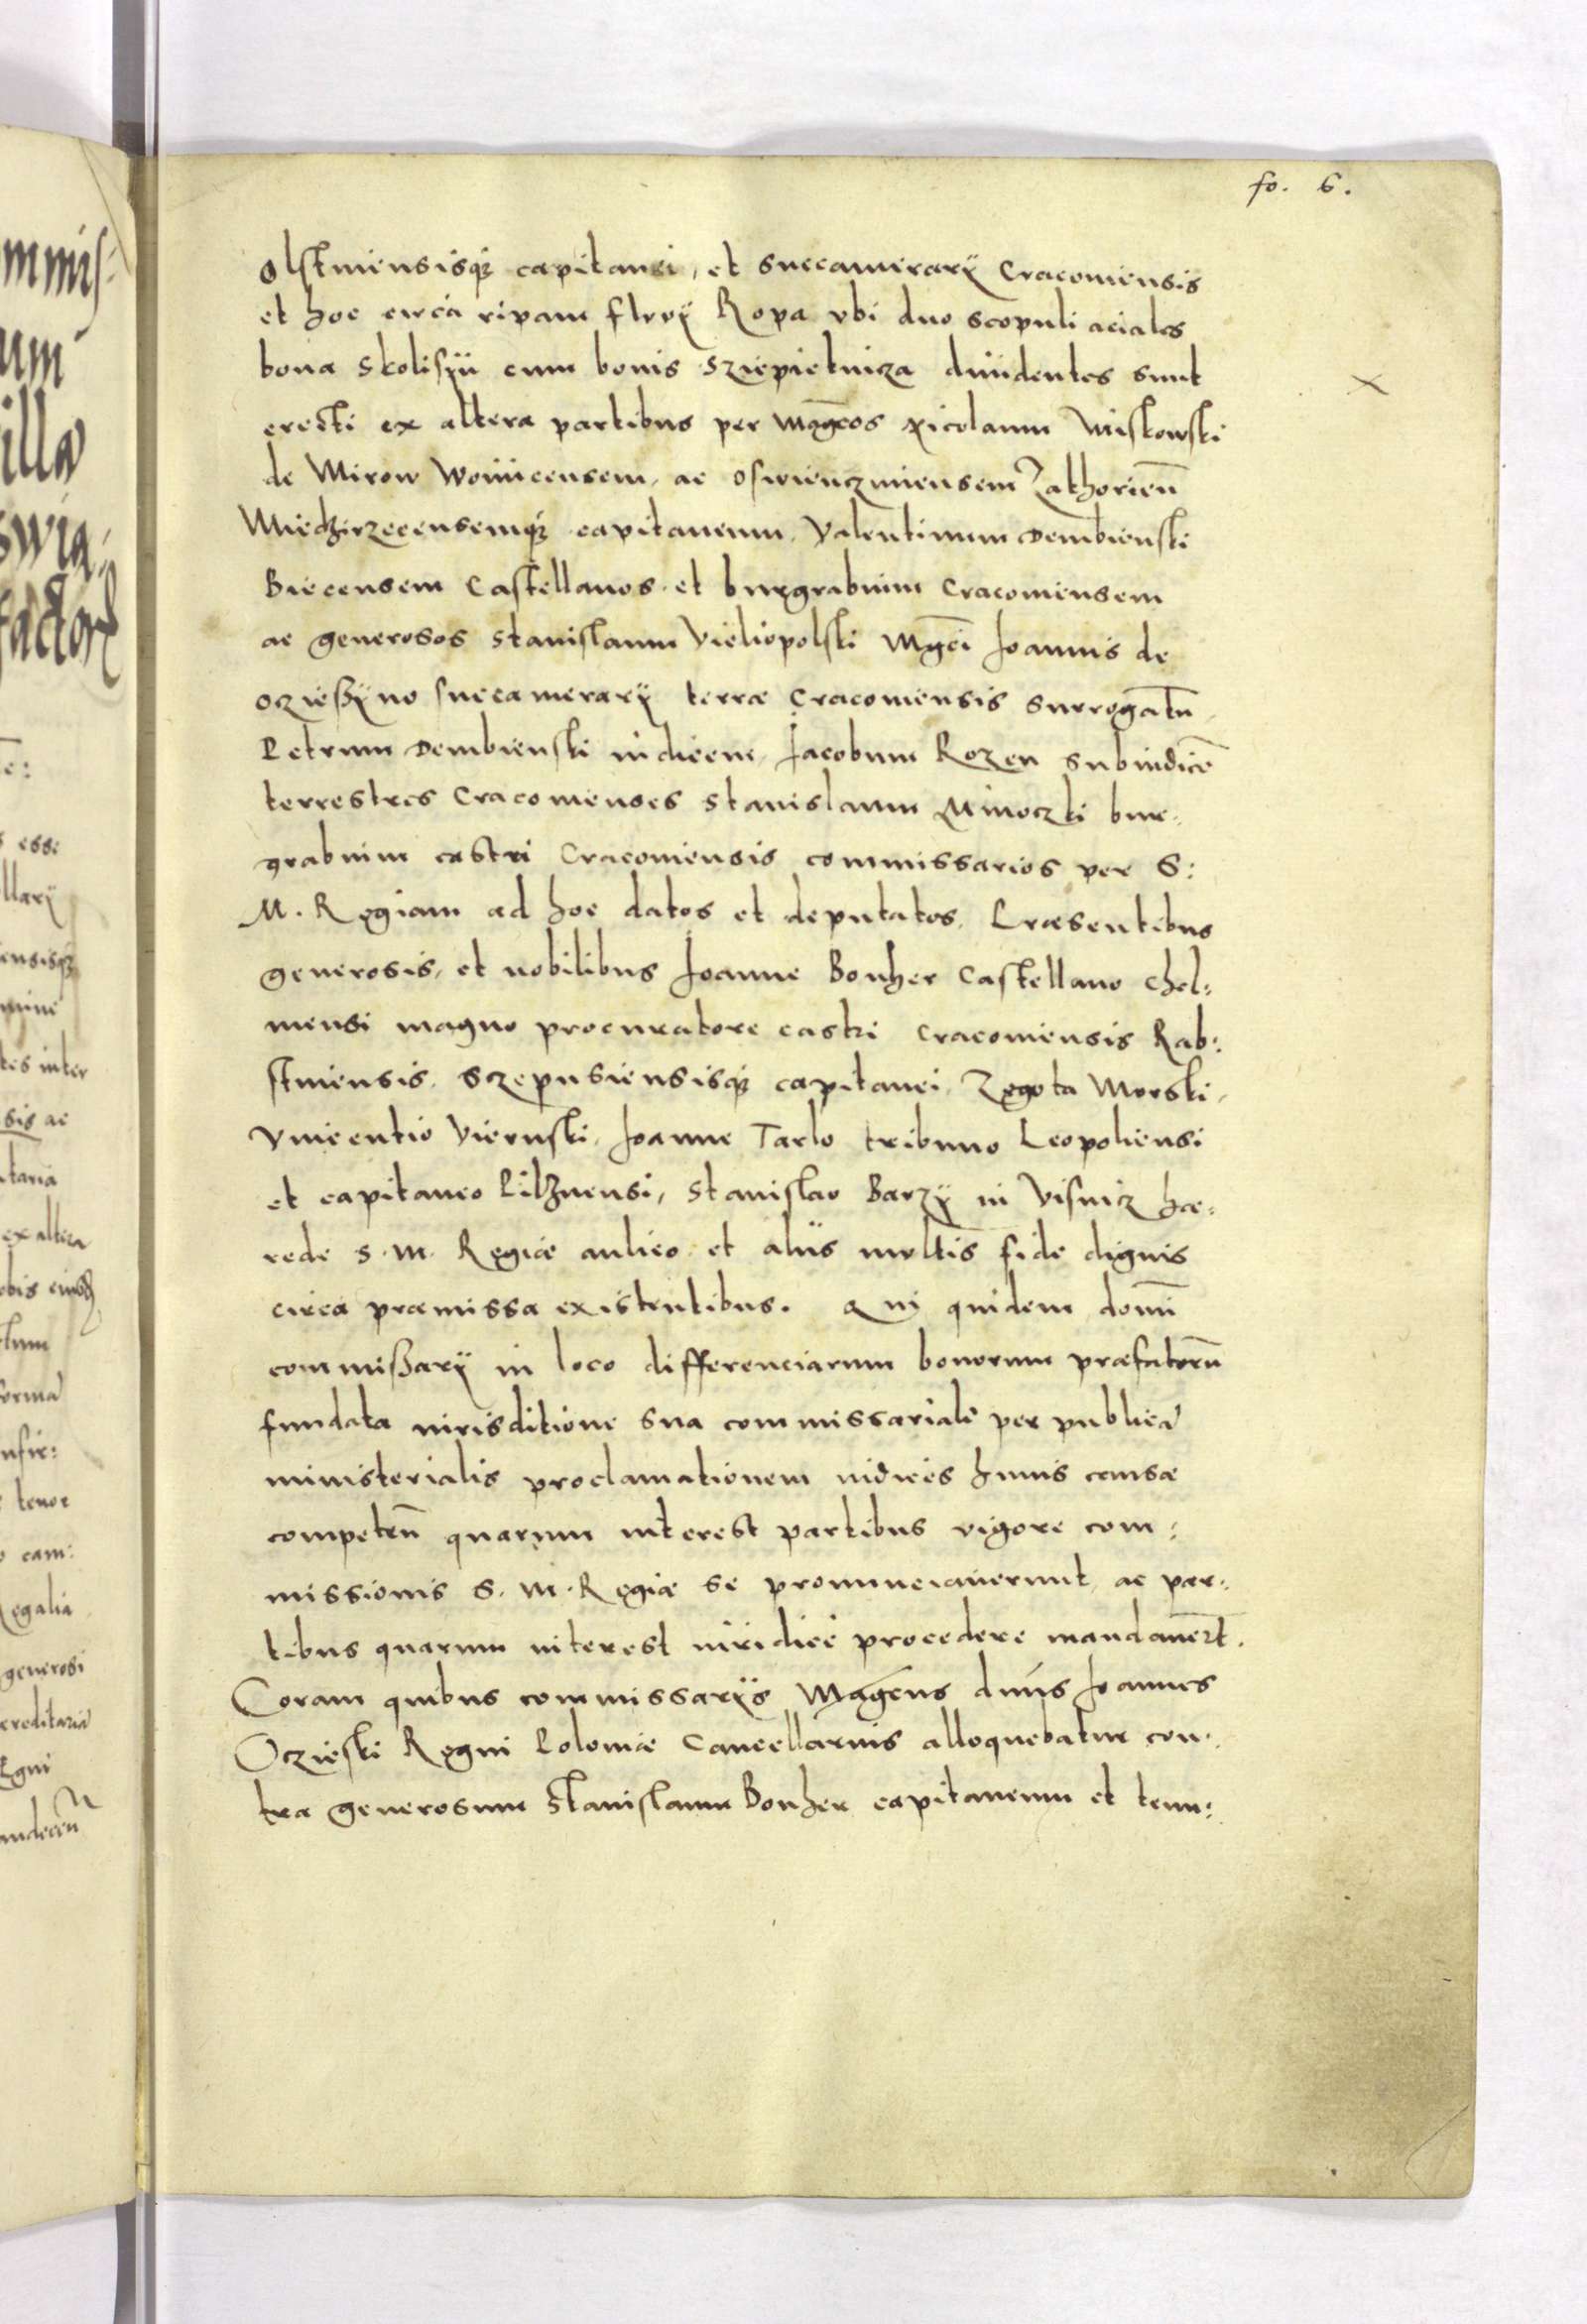 fo. 6.
olstinensisq3 capitanei, et succamerarÿ Cracouiensis
et hoc circa ripam fluuÿ Ropa vbi duo scopuli aciales
bona Skolisÿn cum bonis Szïepietniza diuidentes sunt
erecti ex altera partibus per Magc̄os Nicolaum Miskowski
de Mirow Woinicensem, ac oswienczimiensem Zathorien̄
Miedzirzecensemq3 capitaneum, Valentinum Dembienski
Biecensem Castellanos et burgrabium Cracouiensem
ac generosos Stanislaum Vieliopolski Mgc̄i Joannis de
ozießÿno succamerarÿ terræ Cracouiensis surrogatū
Petrum Dembienski iudicem, Jacobum Rozen subiudicē
terrestres Cracouienses Stanislaum Minoczki bur:
grabium castri Cracouiensis commissarios per S:
M. Regiam ad hoc datos et deputatos. Præsentibus
generosis, et nobilibus Joanne Bonher Castellano Chel:
mensi magno procuratore castri Cracouiensis Rab:
stinensis, Szepusiensisq3 capitanei, Zegota Morski,
Vincentio Viernski, Joanne Tarlo tribuno Leopoliensi
et capitaneo Pilznensi, Stanislao Barzÿ in Visnicz hæ:
rede S. M. Regiæ aulico et aliis multis fide dignis
circa præmissa existentibus. Qui quidem domī
commißarÿ in loco differenciarum bonorum præfatorū
fundata iurisditione sua commissariali per publicā
ministerialis proclamationem iudices huius causæ
competen̄ quarum interest partibus vigore com:
missionis S. M. Regiæ se pronunciauerunt, ac par:
tibus quarum interest iuridicè procedere mandauert̄.
Coram quibus commissarÿs Magcūs dnūs Joannes
Oczieski Regni Poloniæ Cancellarius alloquebatur con:
tra generosum Stanislaum Bonher capitaneum et tenu: